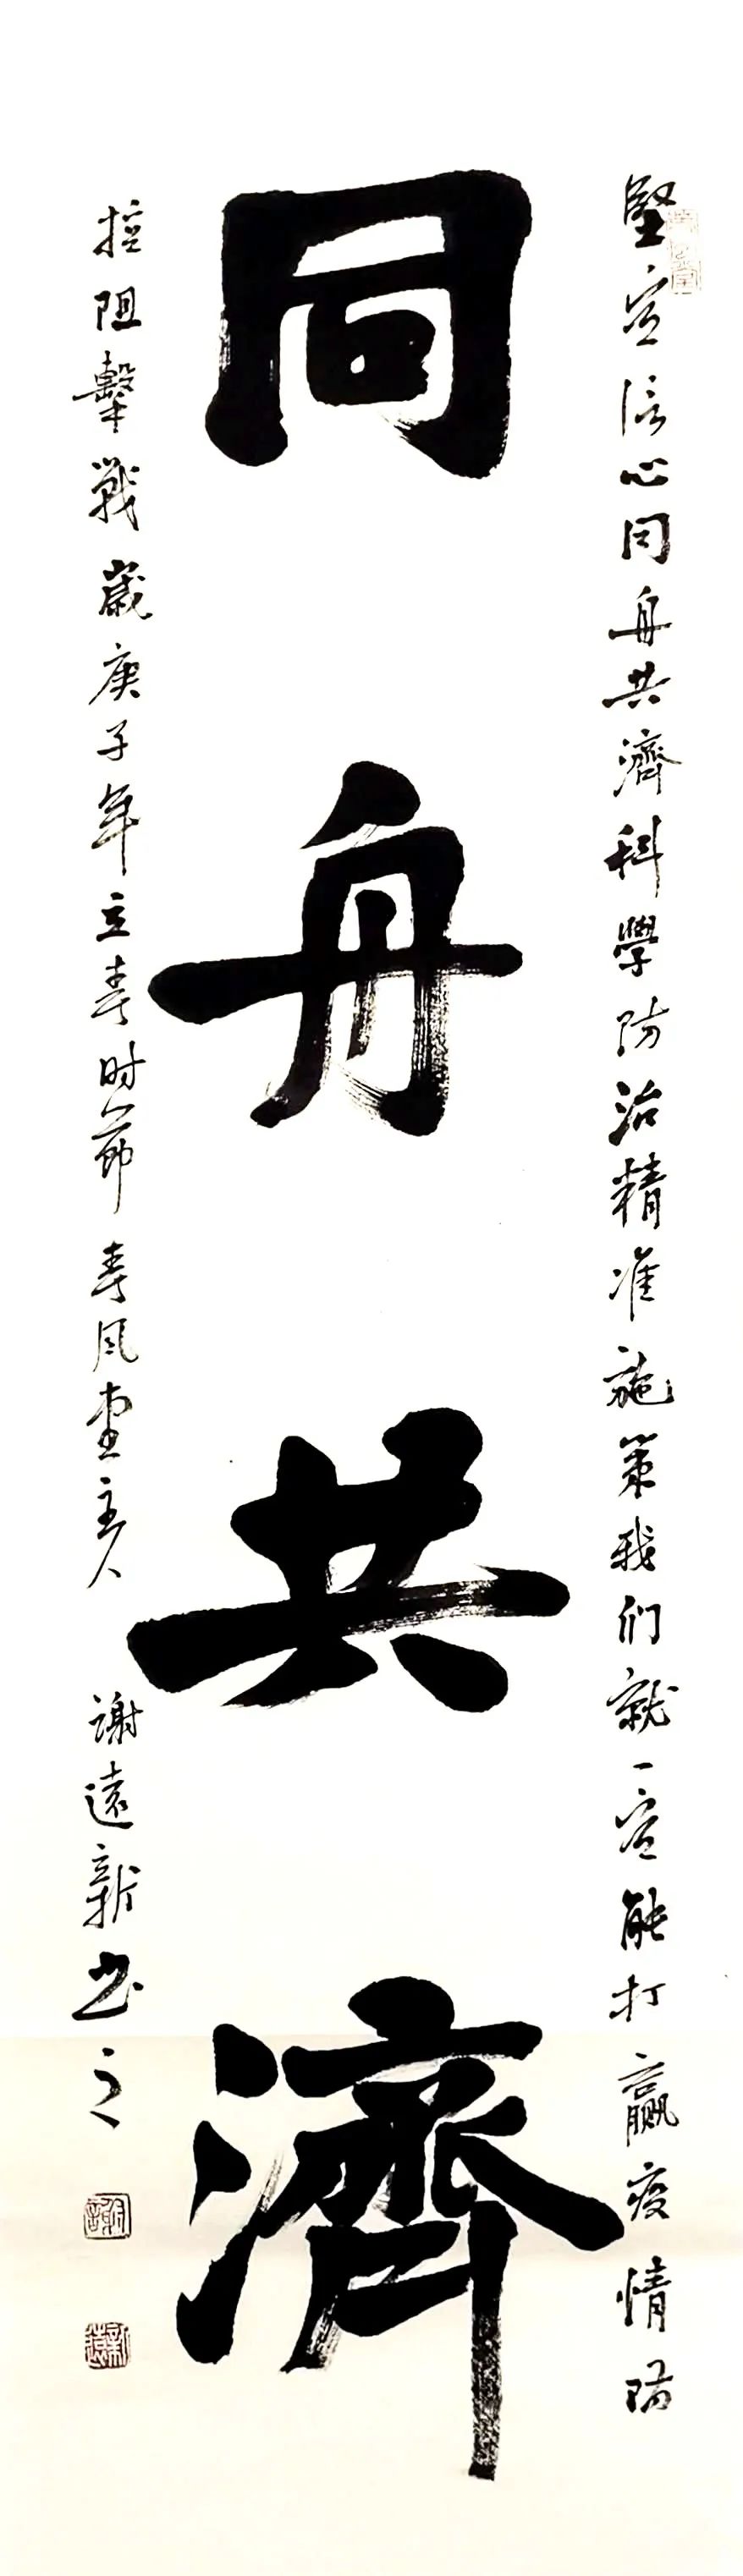 堅定信心同舟共濟科學防治精准施策我们就一定能打贏疫情防
同舟共濟
控阻擊戰歲庚子年立春时節春风堂主人謝遠新书之